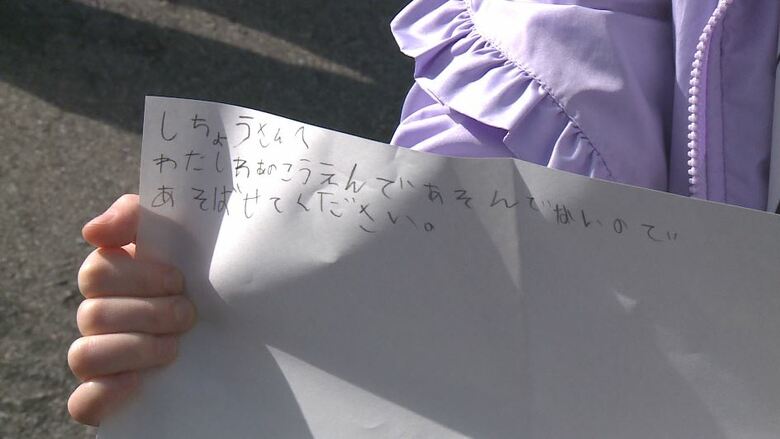 しちょうさんへ
わたしわあのこうえんであそんでないので
あそばせてください。